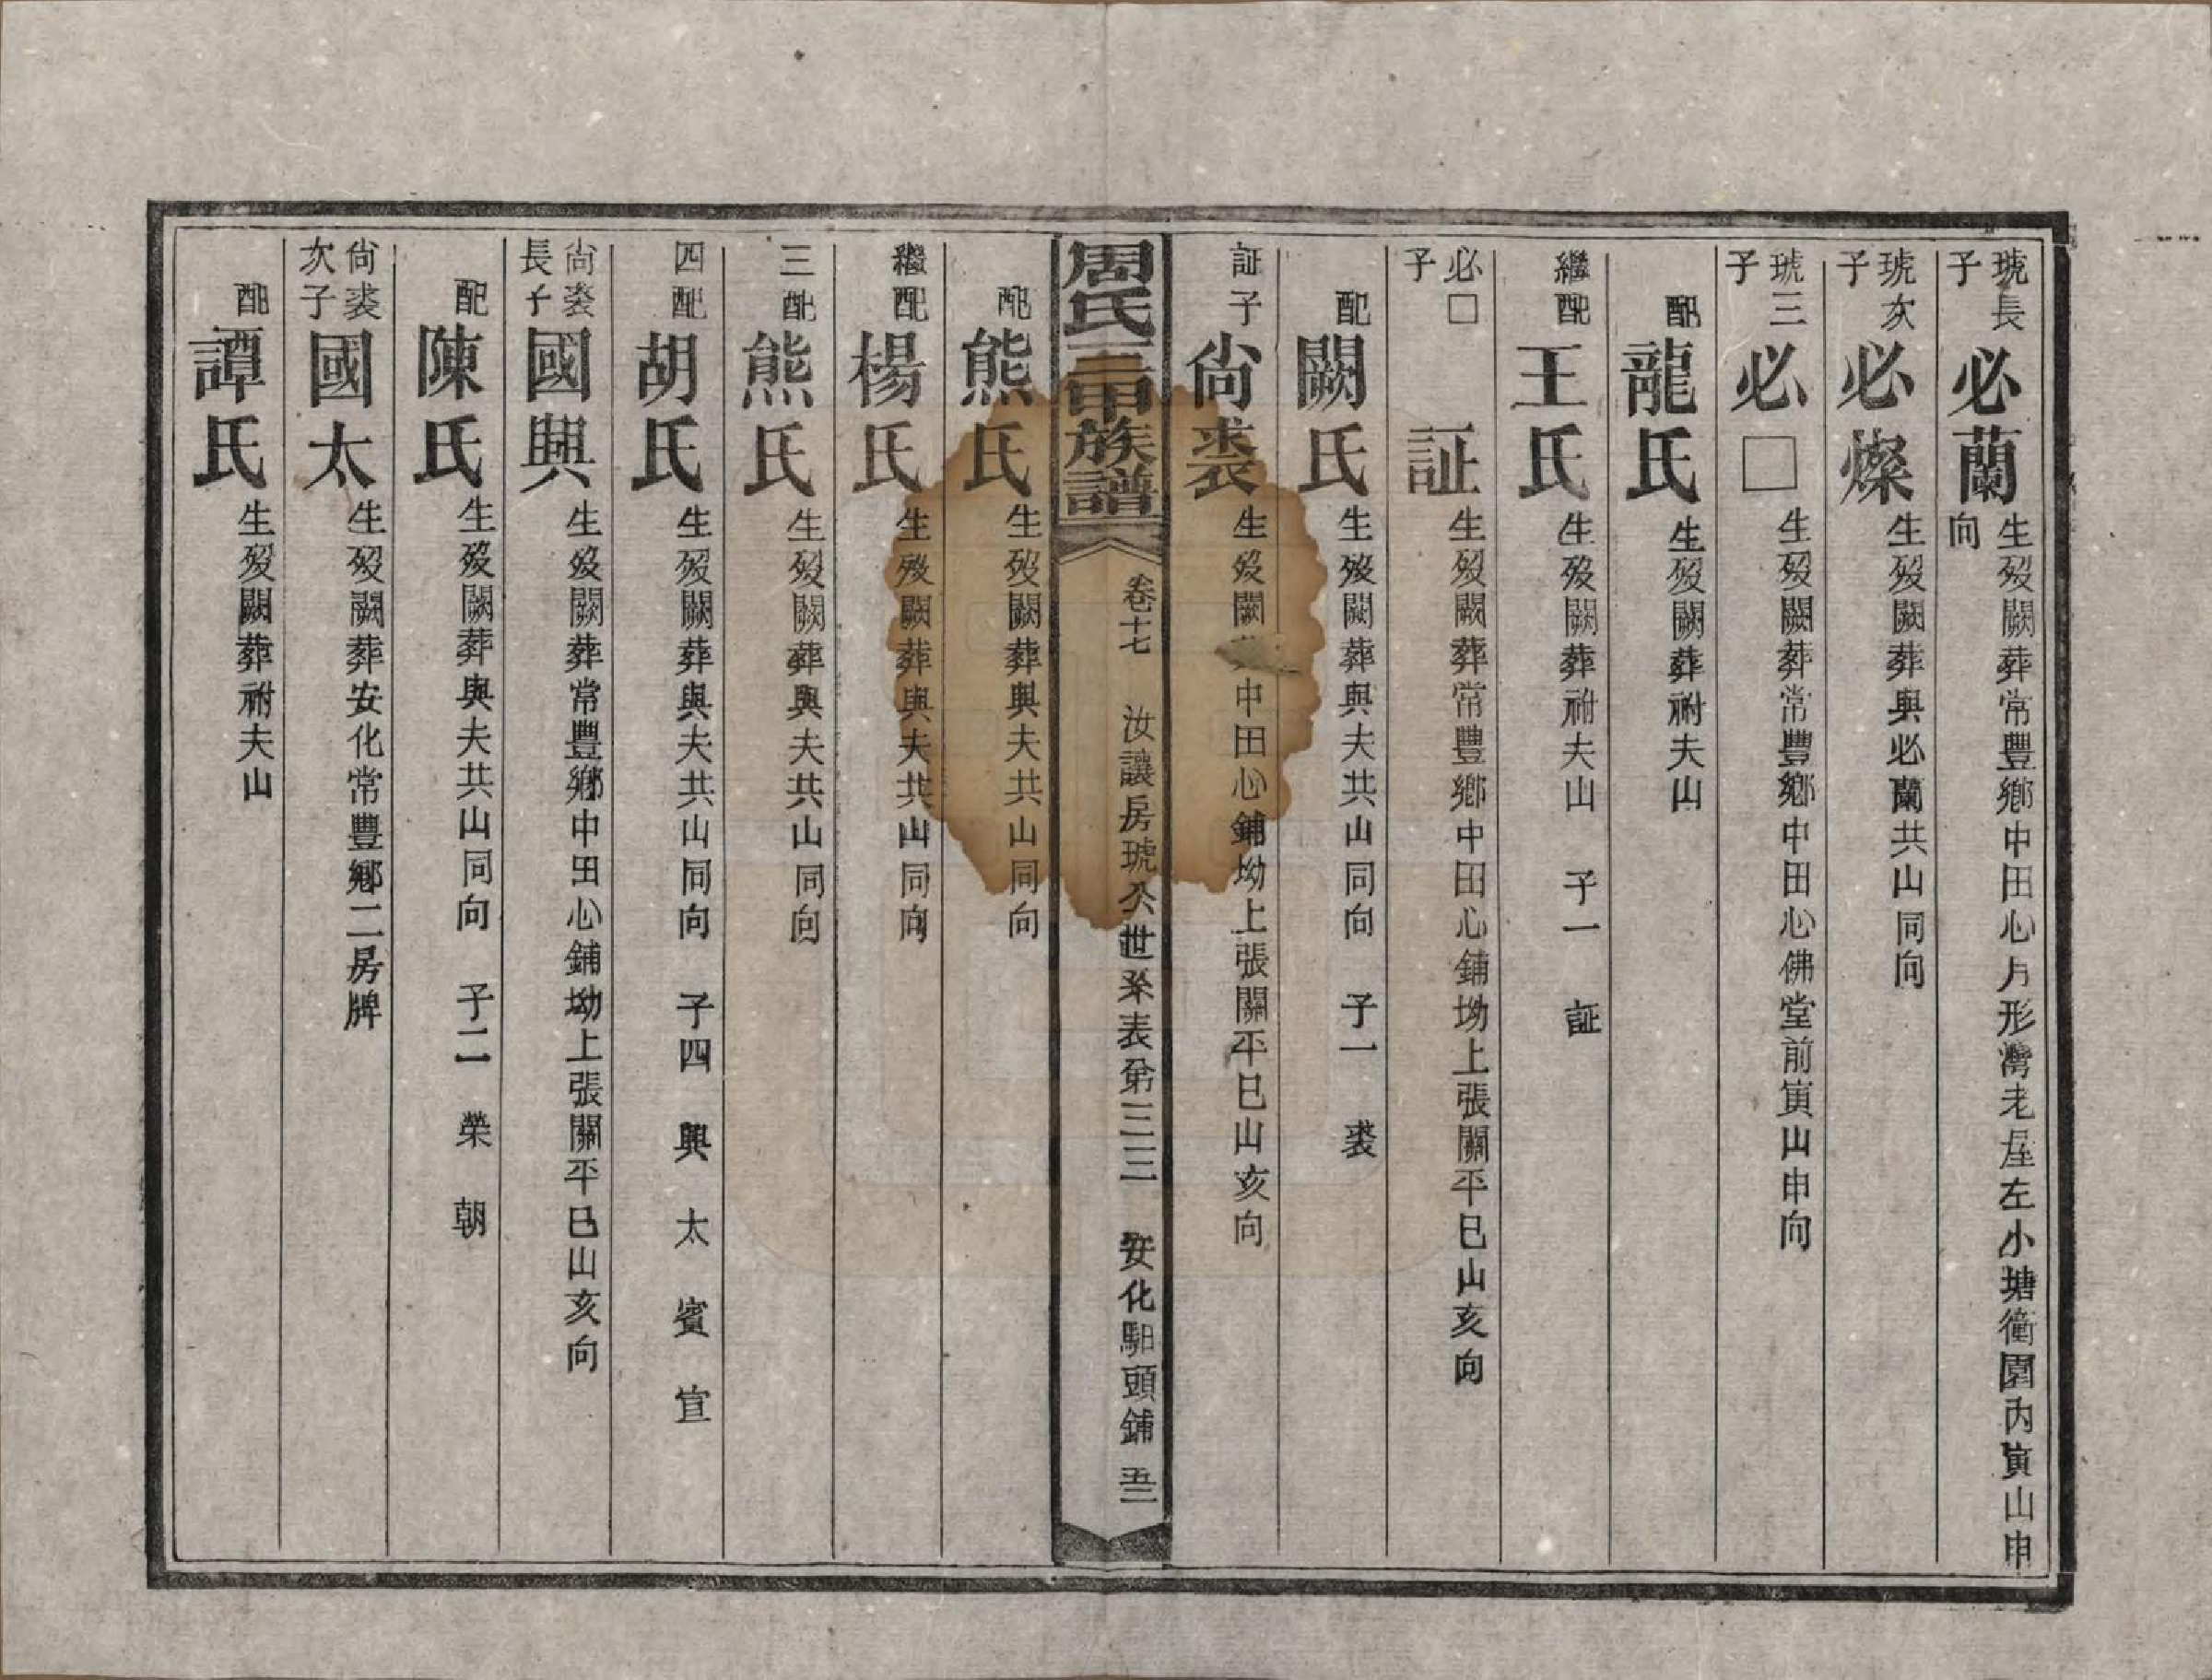 琥長子 必蘭 生歿闕葬常豐鄉中田心月形灣老屋左小塘衝園內寅山申向
琥次子 必燦 生歿闕葬與必蘭共山同向
琥三子 必□ 生歿闕葬常豐鄉中田心佛堂前寅山申向
配 龍氏 生歿闕葬祔夫山
繼配 王氏 生歿闕葬祔夫山 子一 証
必□子 証 生歿闕葬常豐鄉中田心鋪坳上張關平巳山亥向
配 闕氏 生歿闕葬與夫共山同向 子一 裘
証子 尙裘 生歿闕 中田心鋪坳上張關平巳山亥向
周氏三甲族譜 卷十七 汝讓房琥公世系表第三三 安化馹頭鋪 五三
配 熊氏 生歿闕葬與夫共山同向
繼配 楊氏 生歿闕葬與夫共山同向
三配 熊氏 生歿闕葬與夫共山同向
四配 胡氏 生歿闕葬與夫共山同向 子四 興 太 賓 宣
尙裘長子 國興 生歿闕葬常豐鄉中田心鋪坳上張關平巳山亥向
配 陳氏 生歿闕葬與夫共山同向 子二 榮 朝
尙裘次子 國太 生歿闕葬安化常豐鄉二房牌
配 譚氏 生歿闕葬祔夫山